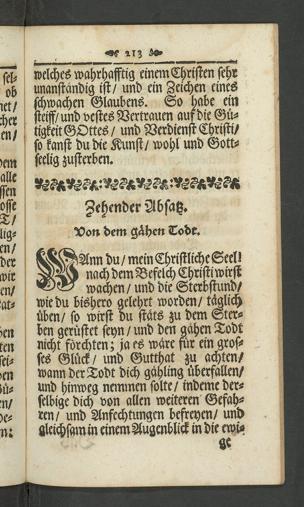 213
welches wahrhafftig einem Christen sehr
unanständig ist/ und ein Zeichen eines
schwachen Glaubens. So habe ein
steiff/ und vestes Vertrauen auf die Gü-
tigkeit GOttes/ und Verdienst Christi/
so kanst du die Kunst/ wohl und Gott-
seelig zusterben.
Zehender Absatz.
Von dem gähen Todt.
WAnn du/ mein Christliche Seel!
nach dem Befelch Christi wirst
wachen/ und die Sterbstund/
wie du bishero gelehrt worden/ täglich
üben/ so wirst du stäts zu dem Ster-
ben gerüstet seyn/ und den gähen Todt
nicht förchten; ja es wäre für ein gros-
ses Glück/ und Gutthat zu achten/
wann der Todt dich gähling überfallen/
und hinweg nemmen solte/ indeme der-
selbige dich von allen weiteren Gefah-
ren/ und Anfechtungen befreyen/ und
gleichsam in einem Augenblick in die ewi-
ge